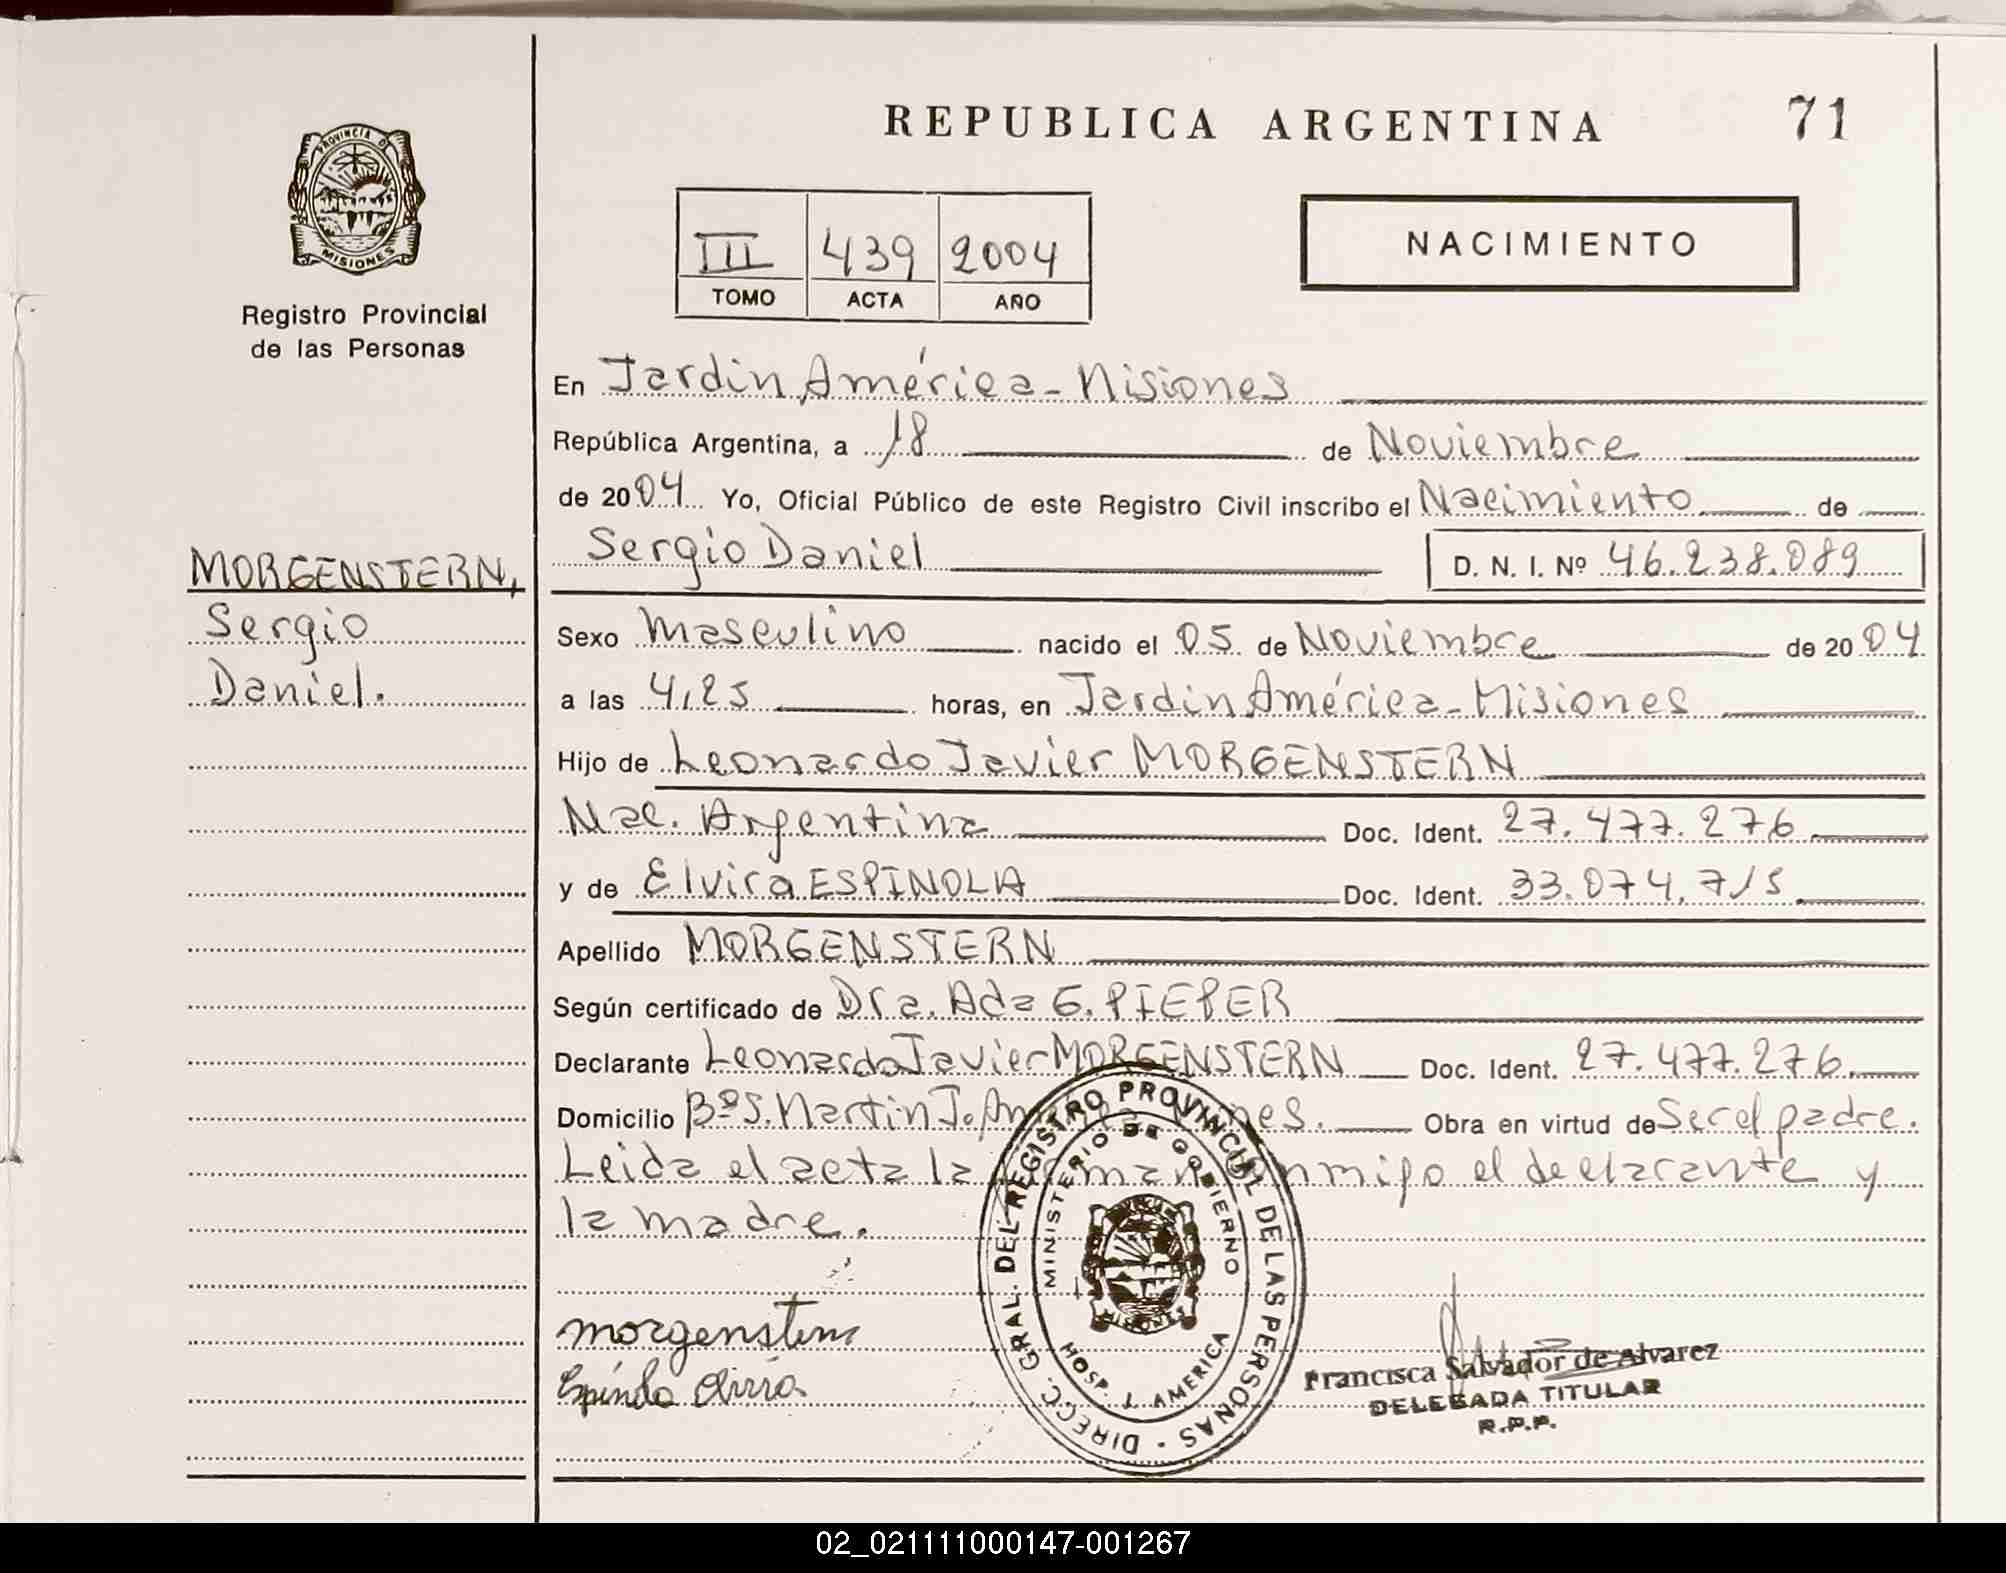 REPUBLICA ARGENTINA
71
PROVINCIA DE
MISIONES
Registro Provincial
de las Personas
III 439 2004
TOMO ACTA AÑO
NACIMIENTO
En Jardin América - Misiones
República Argentina, a 18 de Noviembre
de 2004 Yo, Oficial Público de este Registro Civil inscribo el Nacimiento de
Sergio Daniel D. N. I. Nº 46.238.089
MORGENSTERN,
Sergio
Daniel.
Sexo Masculino nacido el 05 de Noviembre de 2004
a las 4,25 horas, en Jardin América - Misiones
Hijo de Leonardo Javier MORGENSTERN
Nac. Argentina Doc. Ident. 27.477.276
y de Elvira ESPINOLA Doc. Ident. 33.074.715
Apellido MORGENSTERN
Según certificado de Dra. Ada G. PIEPER
Declarante Leonardo Javier MORGENSTERN Doc. Ident. 27.477.276
Domicilio Bº S. Martin J. Obra en virtud de Ser el padre.
Leida el acta la el declarante y
la madre.
DIRECC. GRAL. DEL REGISTRO PROVINCIAL DE LAS PERSONAS -
MINISTERIO DE GOBIERNO
MISIONES
HOSP. AMERICA
morgenstern
Francisca Salvador de Alvarez
DELEGADA TITULAR
R.P.P.
02_021111000147-001267